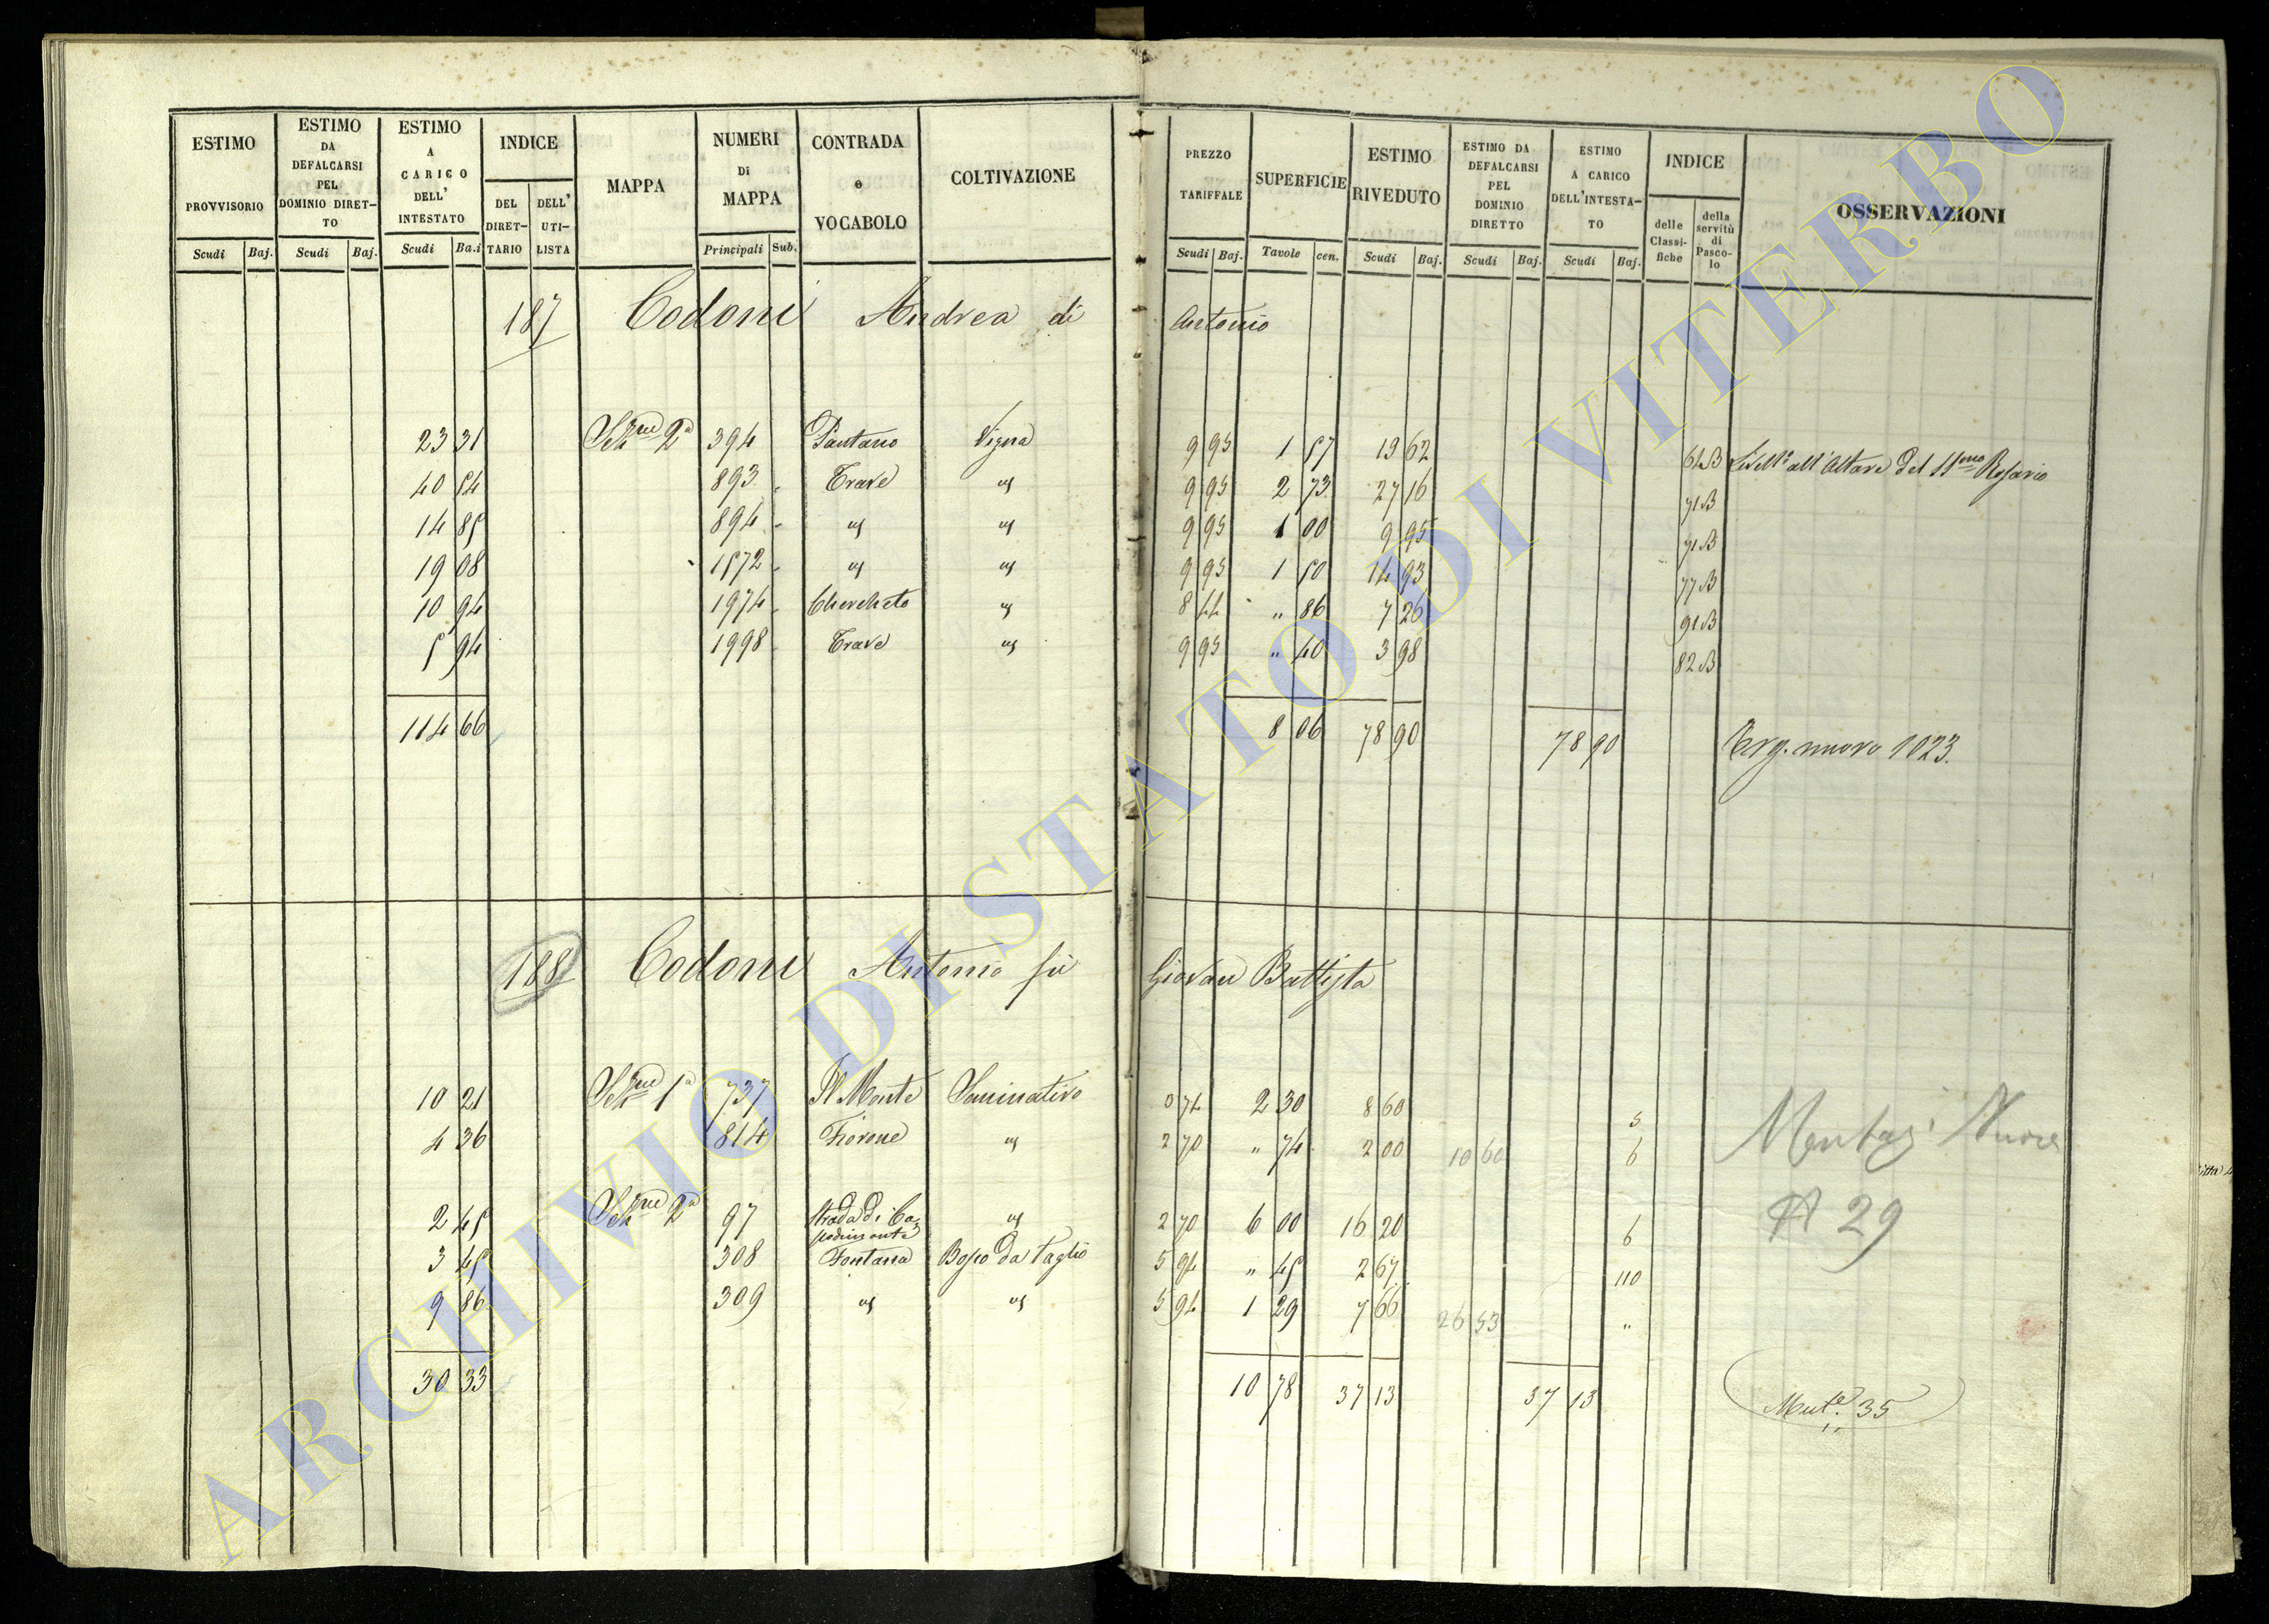 ESTIMO PROVVISORIO | ESTIMO DA DEFALCARSI PEL DOMINIO DIRETTO | ESTIMO A CARICO DELL' INTESTATO | INDICE | MAPPA | NUMERI DI MAPPA | CONTRADA e VOCABOLO | COLTIVAZIONE | PREZZO TARIFFALE | SUPERFICIE | ESTIMO RIVEDUTO | ESTIMO DA DEFALCARSI PEL DOMINIO DIRETTO | ESTIMO A CARICO DELL'INTESTATO | INDICE | OSSERVAZIONI
DEL DIRETTARIO | DELL' UTILISTA | delle Classifiche | della servitù di Pascolo
Scudi | Baj. | Scudi | Baj. | Scudi | Ba.i | Principali | Sub. | Scudi | Baj. | Tavole | cen. | Scudi | Baj. | Scudi | Baj. | Scudi | Baj.
187 Codoni Andrea di Antonio
23 31 | Sezne 2a | 394 | Pantano | Vigna | 9 95 | 1 57 | 19 62 | 61B | Livello all'Altare del SSmo Rosario
40 54 | 893 | Trave | " | 9 95 | 2 73 | 27 16 | 71B
14 85 | 894 | " | " | 9 95 | 1 00 | 9 95 | 71B
19 08 | 1572 | " | " | 9 95 | 1 50 | 14 93 | 77B
10 94 | 1974 | Chercheto | " | 8 44 | " 86 | 7 26 | 91B
5 94 | 1998 | Trave | " | 9 95 | " 40 | 3 98 | 82B
114 66 | 8 06 | 78 90 | 78 90 | nuovo 1023.
188 Codoni Antonio fù Giovan Battista
10 21 | Sezne 1a | 737 | Il Monte | Seminativo | 3 74 | 2 30 | 8 60 | 5
4 36 | 814 | Fiorone | " | 2 70 | " 74 | 2 00 | 10 60 | 6
Nuova
2 45 | Sezne 2a | 97 | Strada di Capodimonte | " | 2 70 | 6 00 | 16 20 | 6
A 29
3 45 | 308 | Fontana | Bosco da Taglio | 5 94 | " 45 | 2 67 | 110
9 86 | 309 | " | " | 5 94 | 1 29 | 7 66 | 26 53 | "
30 33 | 10 78 | 37 13 | 37 13
Muta. 35
ARCHIVIO DI STATO DI VITERBO